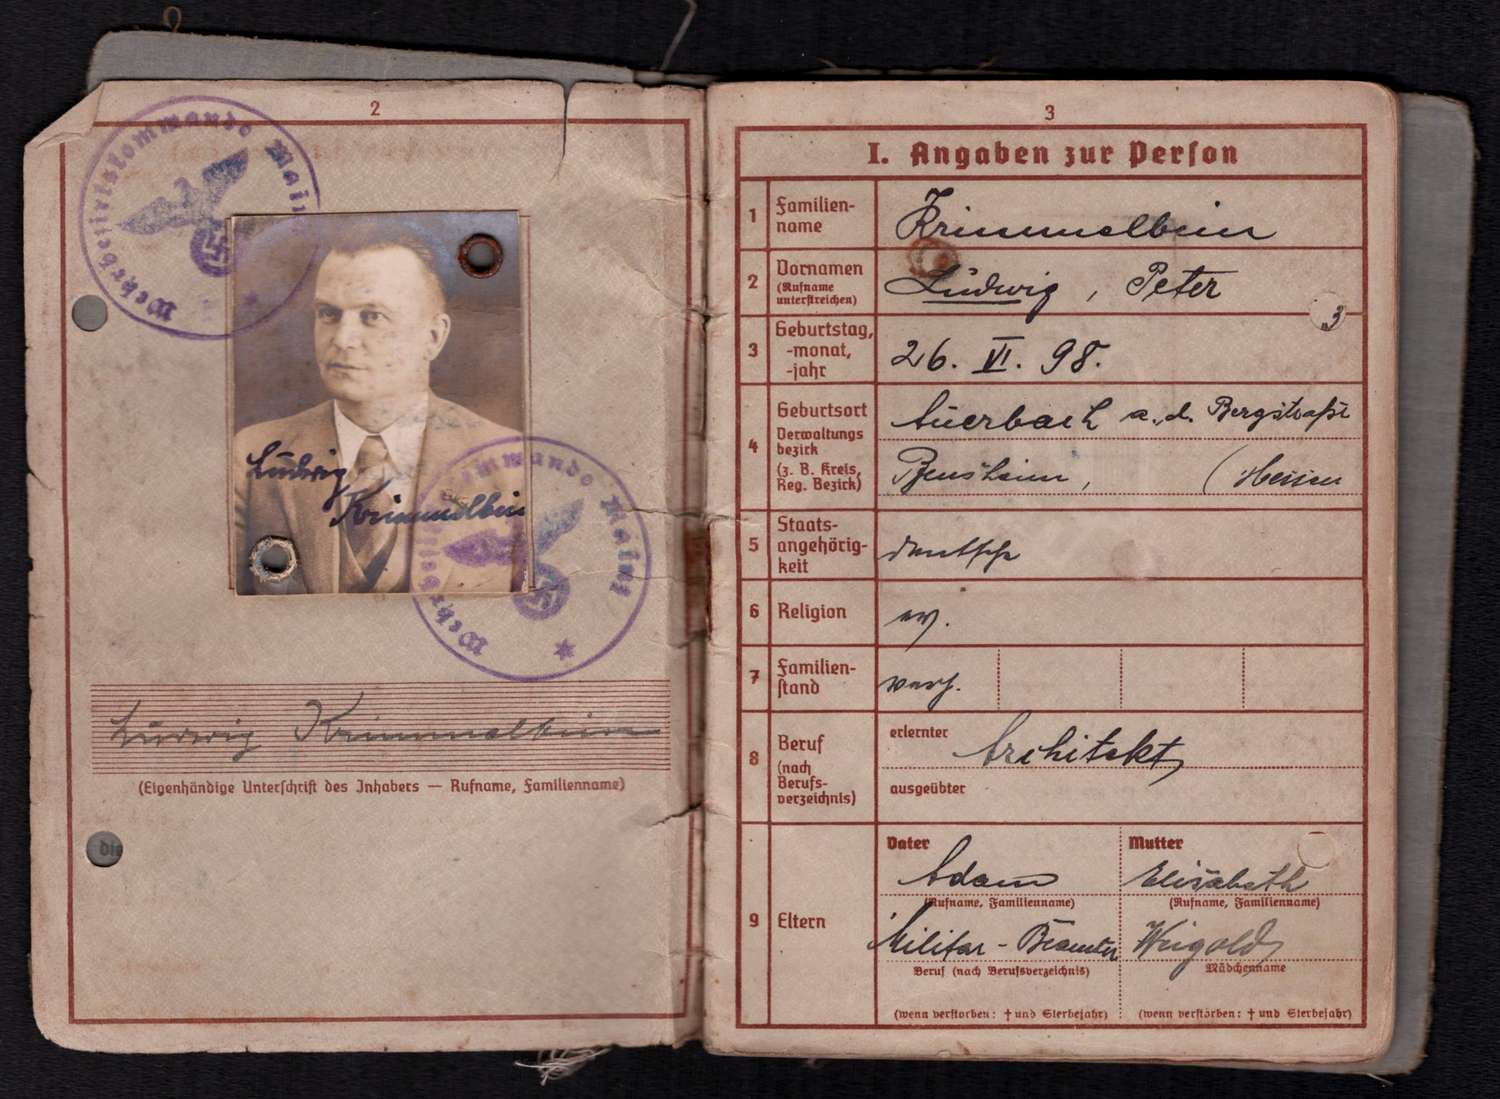 2
Wehrbezirkskommando Mainz
Ludwig
Krimmelbein
Wehrbezirkskommando Mainz
Ludwig Krimmelbein
(Eigenhändige Unterschrift des Inhabers — Rufname, Familienname)
die
3
I. Angaben zur Person
1 Familien-
name
Krimmelbein
2 Vornamen
(Rufname
unterstreichen)
Ludwig, Peter
3
3 Geburtstag,
-monat,
-jahr
26. VI. 98.
4 Geburtsort
Verwaltungs
bezirk
(z. B. Kreis,
Reg. Bezirk)
Auerbach a. d. Bergstraße
Bensheim, (Hessen
5 Staats-
angehörig-
keit
deutsch
6 Religion
ev.
7 Familien-
stand
verh.
8 Beruf
(nach
Berufs-
verzeichnis)
erlernter
Architekt
ausgeübter
9 Eltern
Vater
Adam
(Rufname, Familienname)
Militär-Beamter
Beruf (nach Berufsverzeichnis)
(wenn verstorben: † und Sterbejahr)
Mutter
Elisabeth
(Rufname, Familienname)
Weigold
Mädchenname
(wenn verstorben: † und Sterbejahr)